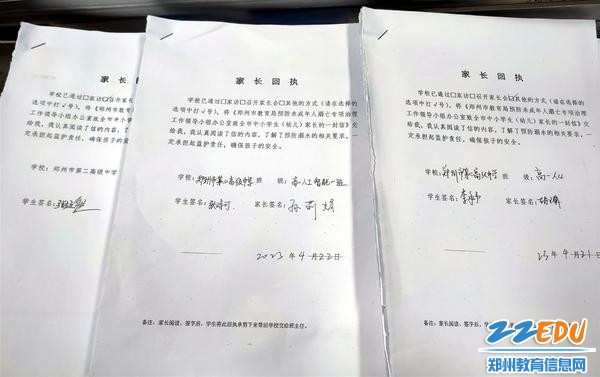 家长回执
学校已通过☐家访☑召开家
选项中打√号),将《郑州市教育
工作领导小组办公室致全市中小
给我。我认真阅读了信的内容,
定承担起监护责任,确保孩子的
学校:郑州市第二高级中学
学生签名:
家长回执
学校已通过☐家访☐召开家长会☑其他的方式(请在选择的
选项中打√号),将《郑州市教育局预防未成年人溺亡专项治理
工作领导小组办公室致全市中小学生(幼儿)家长的一封信》交
给我。我认真阅读了信的内容,了解了预防溺水的相关要求,一
定承担起监护责任,确保孩子的安全。
学校:郑州市第二高级中学 班 级:高一人工智能一班
学生签名: 家长签名:孙
2023年4月22日
备注:家长阅读、签字后,学生将此回执单剪下来带回学校交给班主任。
家长回执
学校已通过☐家访☐召开家长会☑其他的方式(请在选择的
选项中打√号),将《郑州市教育局预防未成年人溺亡专项治理
工作领导小组办公室致全市中小学生(幼儿)家长的一封信》交
给我。我认真阅读了信的内容,了解了预防溺水的相关要求,一
定承担起监护责任,确保孩子的安全。
学校:郑州市第二高级中学 班 级:高一人4
学生签名:李 家长签名:
23年4月21日
备注:家长阅读、签字后,学生将此回执单剪下来带回学校交给班主任。
22EDU
郑州教育信息网